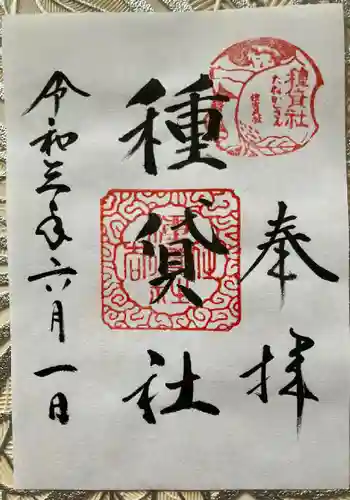 奉拝
種貸社
種貸社
たねかしさん
住吉大社
令和三年六月一日